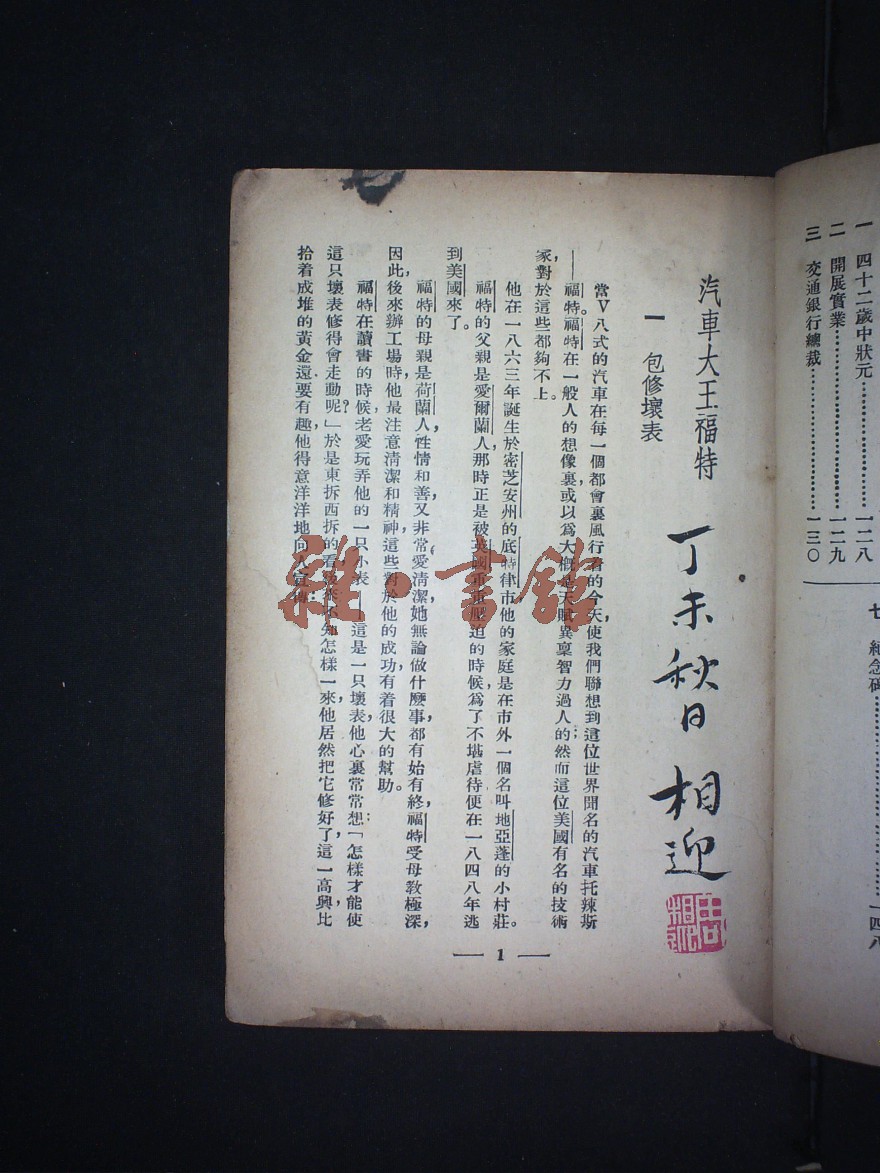 一　四十二歲中狀元……………一二八
二　開展實業……………一二九
三　交通銀行總裁……………一三〇
七　紀念碑……………一四八
汽車大王福特
丁未秋日　相迎
一　包修壞表
當V八式的汽車在每一個都會裏風行着的今天，使我們聯想到這位世界聞名的汽車托辣斯
——福特。福特在一般人的想像裏，或以爲大概是天賦異稟智力過人的；然而這位美國有名的技術
家，對於這些都夠不上。
他在一八六三年誕生於密芝安州的底特律市。他的家庭是在市外一個名叫地亞蓬的小村莊。
福特的父親是愛爾蘭人，那時正是被英國重重壓迫的時候，爲了不堪虐待，便在一八四八年逃
到美國來了。
福特的母親是荷蘭人，性情和善，又非常愛清潔，她無論做什麼事，都有始有終，福特受母教極深，
因此，後來辦工場時他最注意清潔和精神，這些對於他的成功，有着很大的幫助。
福特在讀書的時候，老愛玩弄他的一只小表——這是一只壞表，他心裏常常想：「怎樣才能使
這只壞表修得會走動呢？」於是東拆西拆的看，不知怎樣一來，他居然把它修好了，這一高興，比
拾着成堆的黃金還要有趣，他得意洋洋地向人宣傳：
— 1 —
雜·書館